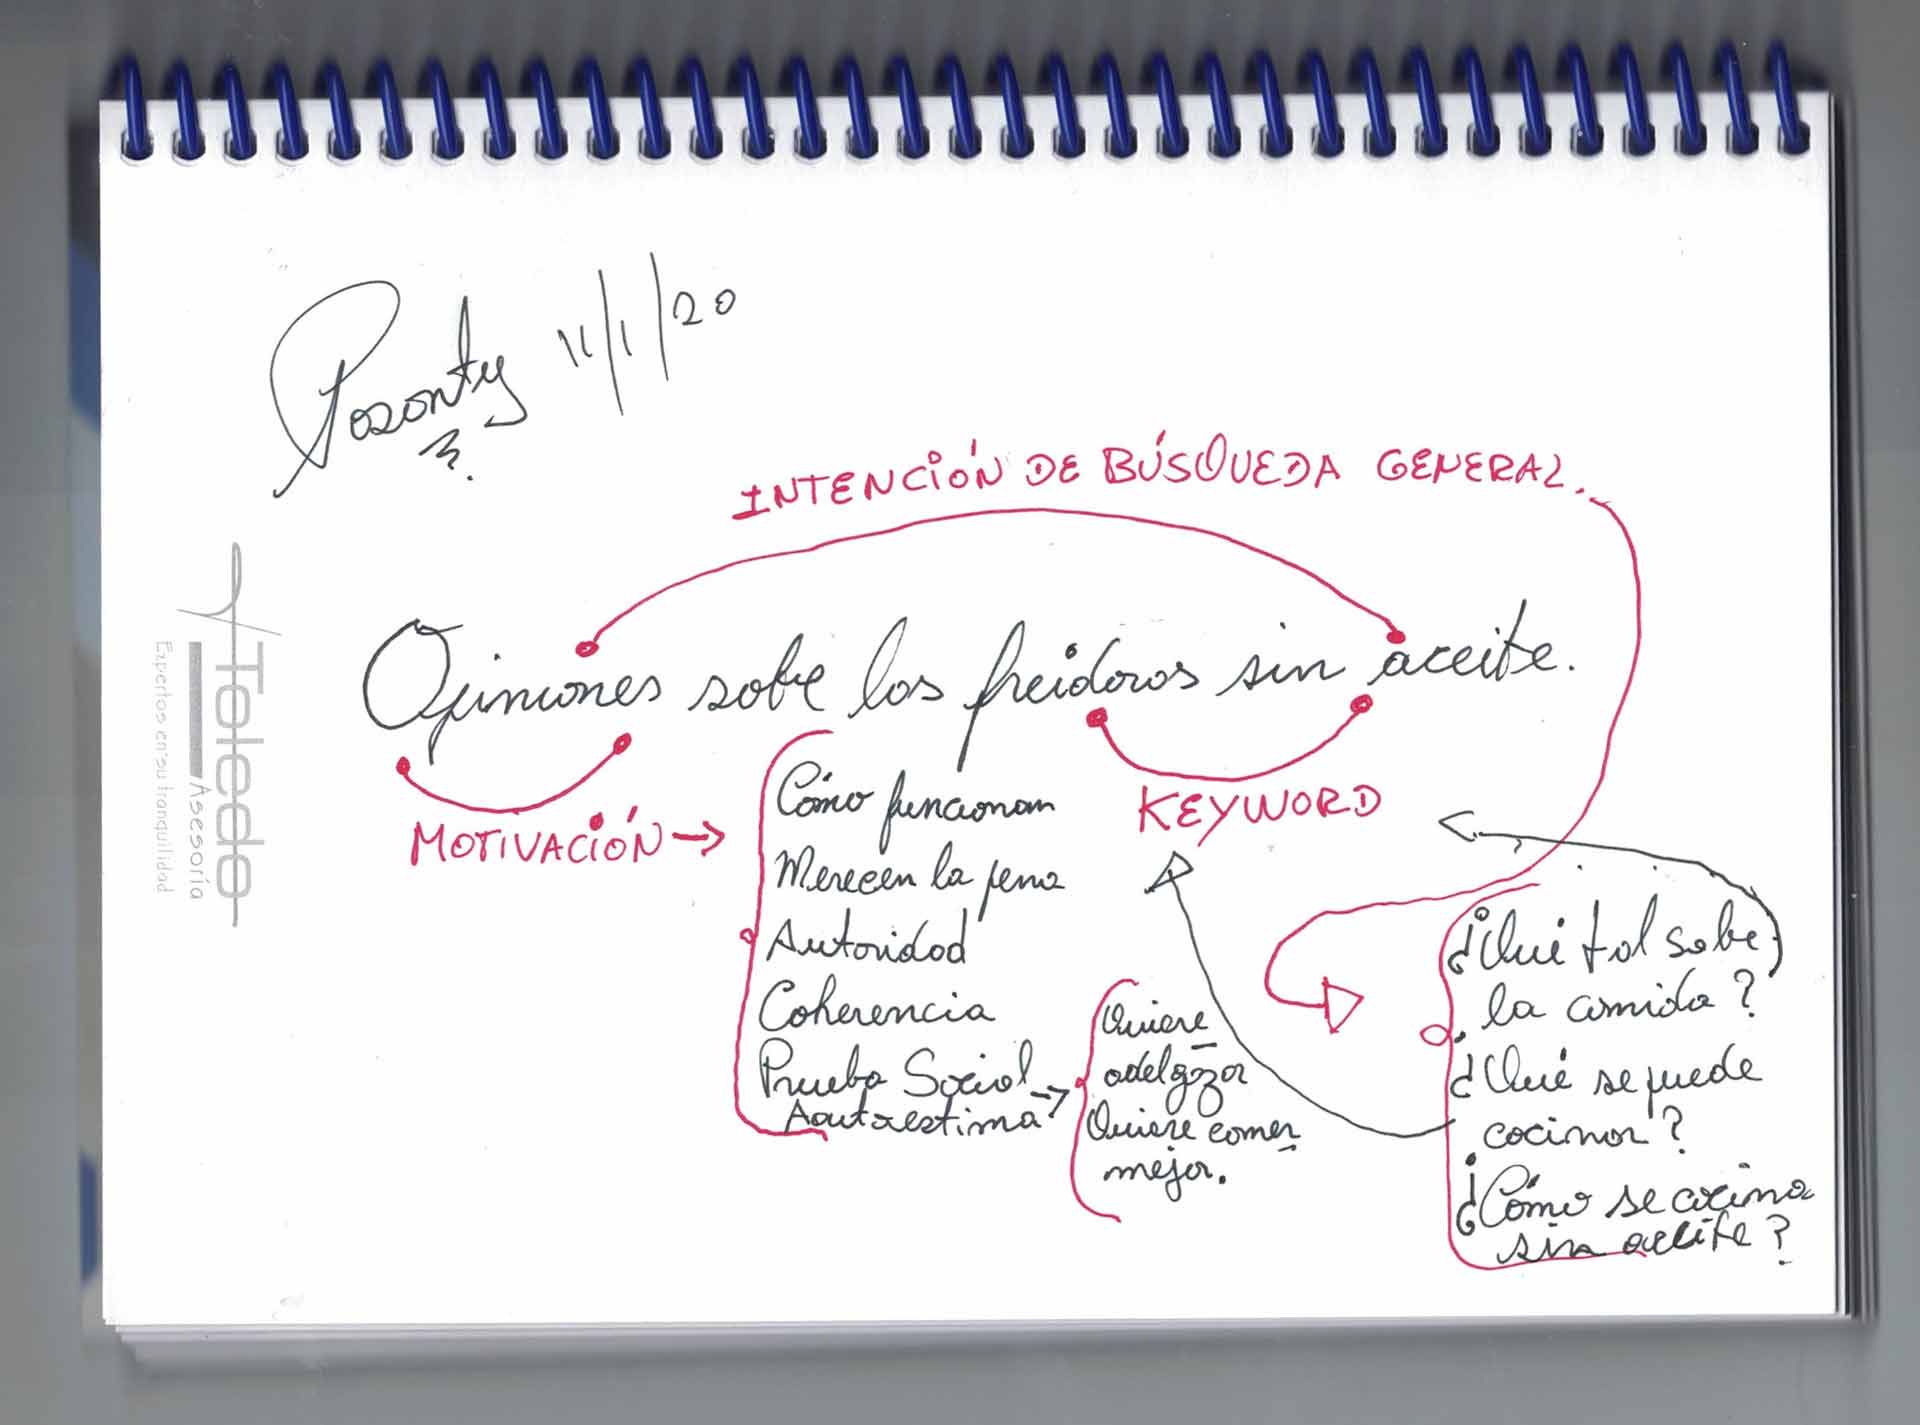 Posonty 11/1/20
INTENCIÓN DE BÚSQUEDA GENERAL.
Opiniones sobre las freidoras sin aceite.
MOTIVACIÓN →
Cómo funcionan
Merecen la pena
Autoridad
Coherencia
Prueba Social
Aautoestima →
Quiere
adelgazar
Quiere comer
mejor.
KEYWORD
¿Qué tal sabe
la comida?
¿Qué se puede
cocinar?
¿Cómo se cocina
sin aceite?
Toledo
Asesoría
Expertos en su tranquilidad